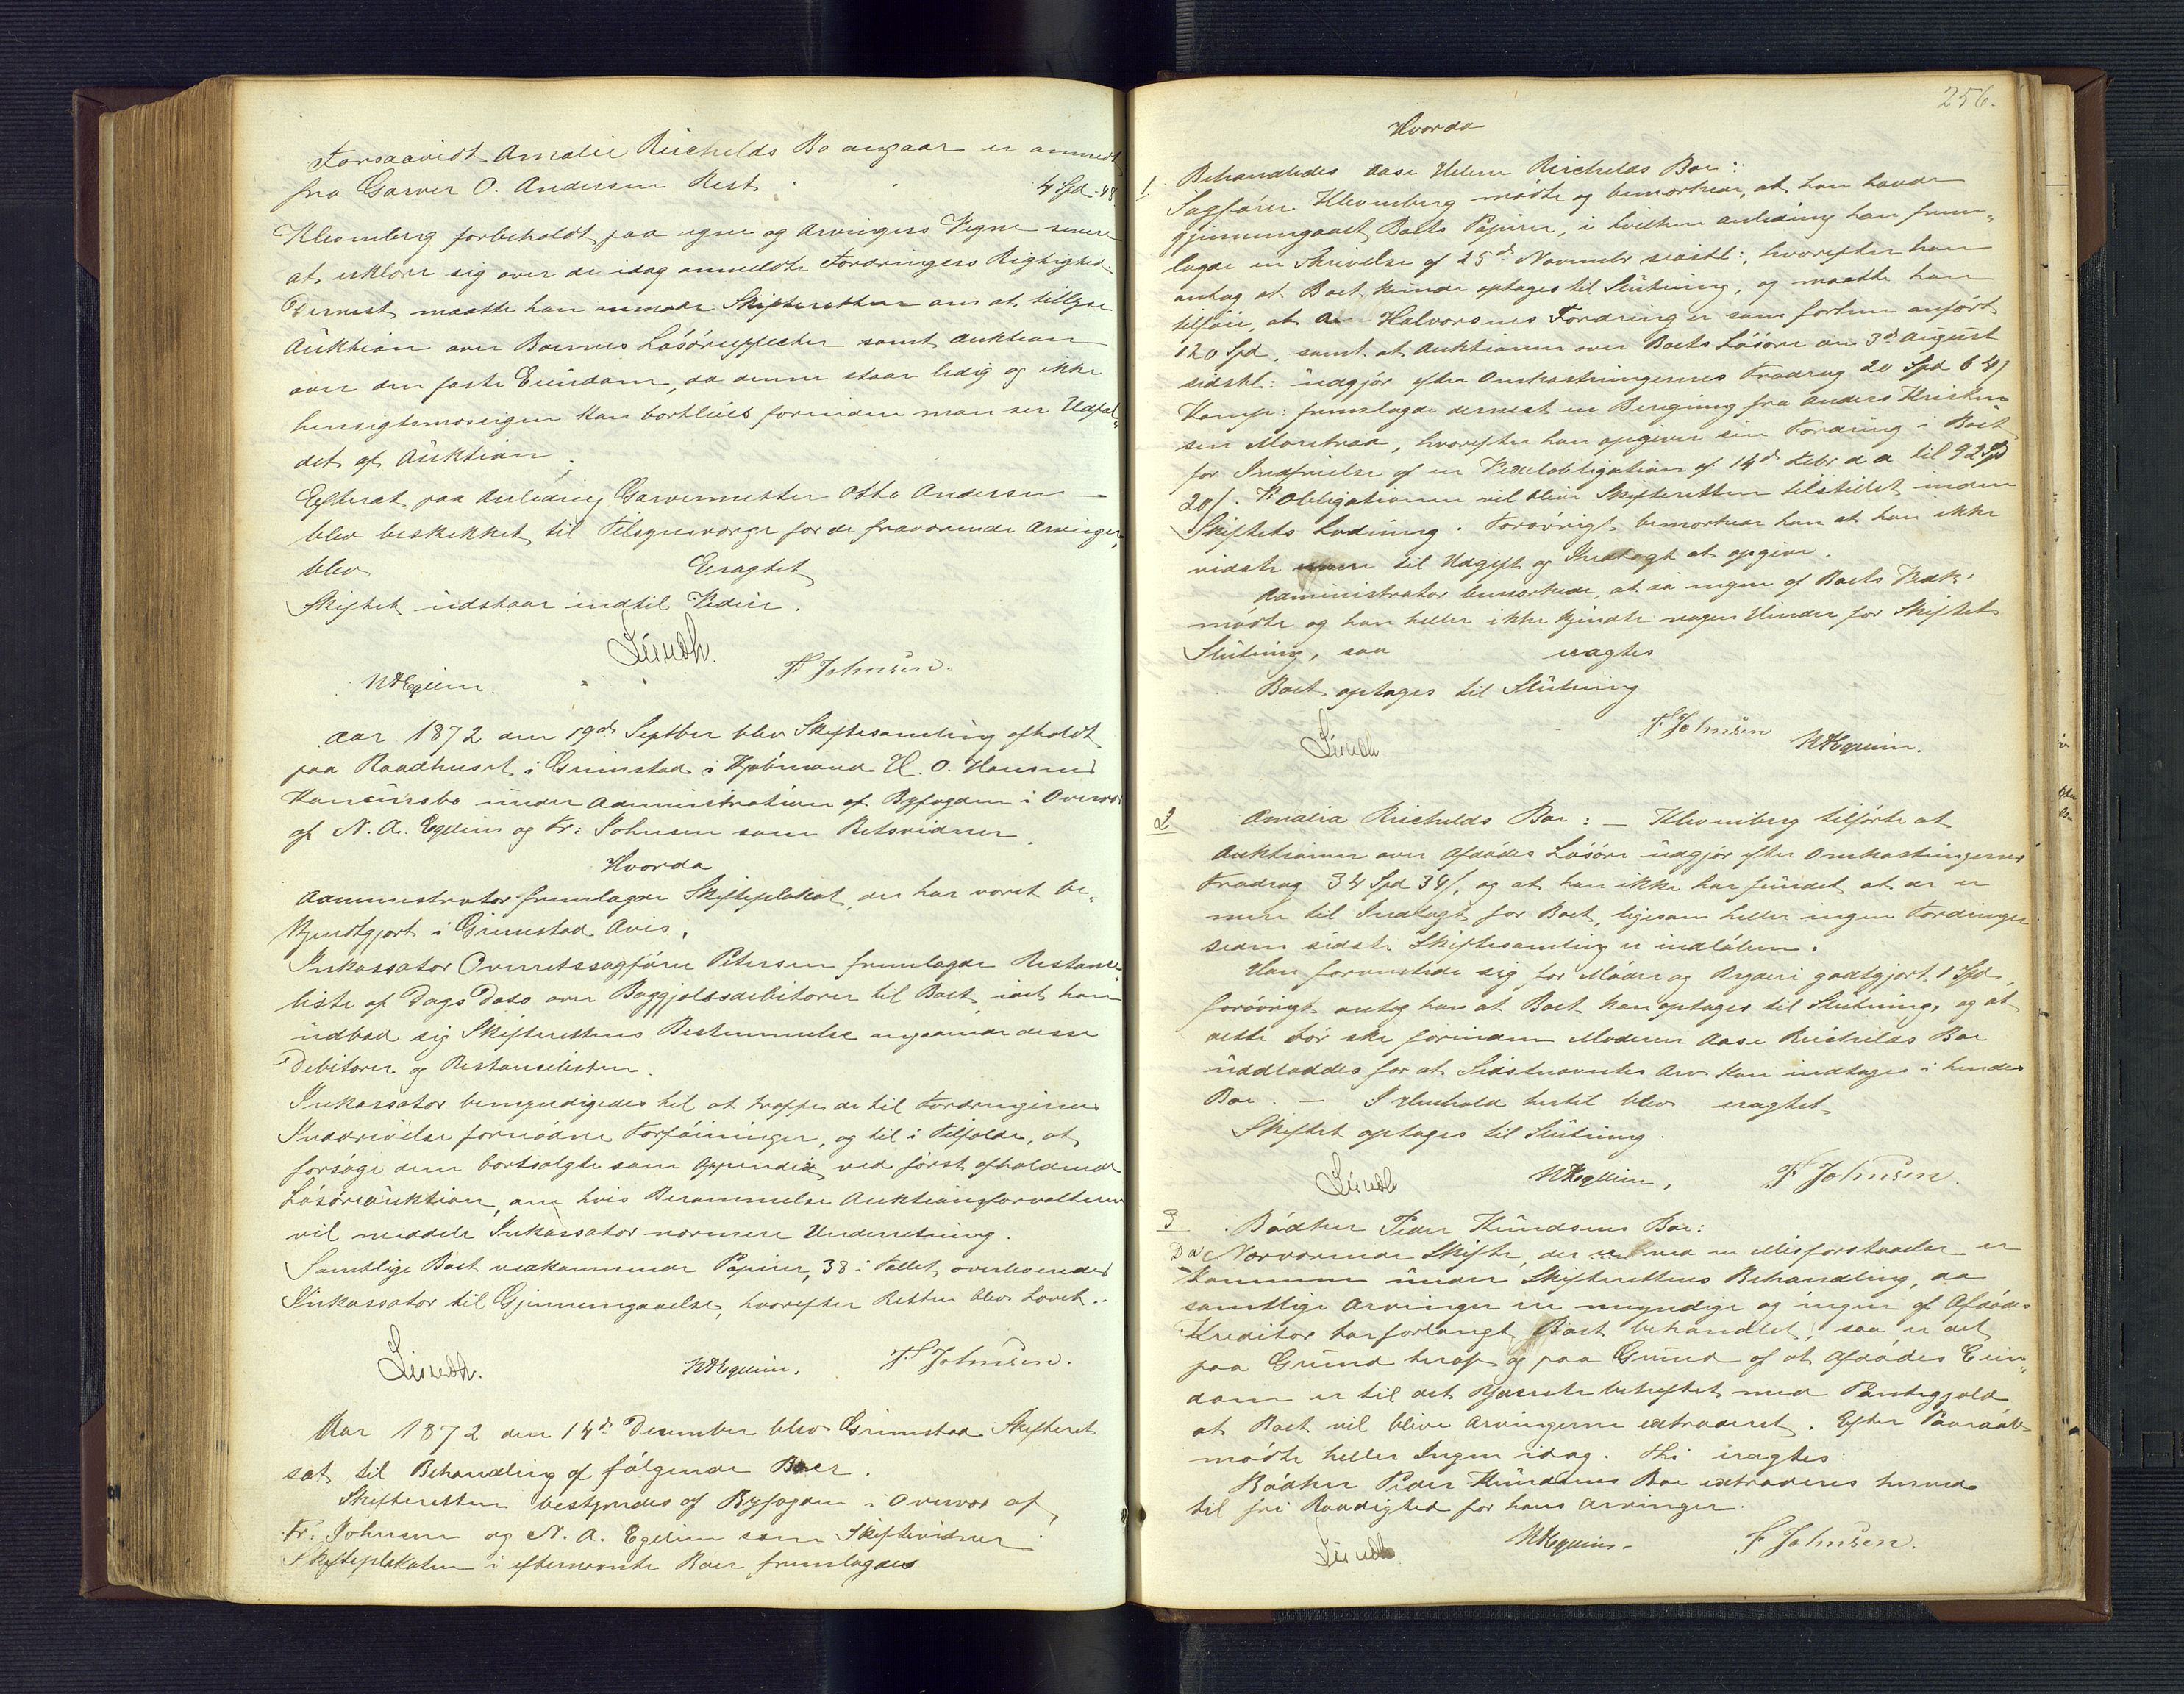 Forsaavidt Amalie Reichelds Bo angaar er anmeldt
fra Garver O. Andersen Rest 4 Spd. 48
Klevenberg forbeholdt paa egne og Arvingers Vegne senere
at erklære sig over de idag anmeldte Fordringers Rigtighed.
Dernæst maatte han anmode Skifteretten om at tillyse
Auktion over Boernes Løsøreeffecter samt Auktion
over den faste Eiendom, da denne staar ledig og ikke
hensigtsmæssigen kan bortleies forinden man ser Udfal-
det af Auktion.
Efterat paa Anledning Garvermester Otto Andersen
blev beskikket til Tilsynsværge for de fraværende Arvinger,
blev Eragtet
Skiftet udstaar indtil Videre.
Lundh.
NAEgelien. F. Johnsen.
Aar 1872 den 19de Septber blev Skiftesamling afholdt
paa Raadhuset i Grimstad i Kjøbmand H. O. Hansens
Konkursbo under Administration af Byfogden i Overvær
af N. A. Egelien og Fr: Johnsen som Retsvidner.
Hvorda
Administrator fremlagde Skifteplakat, der har været be-
kjendtgjort i Grimstad Avis.
Inkassator Overretssagfører Petersen fremlagde Restance
liste af Dags Dato over Boggjeldsdebitorer til Boet, idet han
udbad sig Skifterettens Bestemmelse angaaende disse
Debitorer og Restancelisten.
Inkassator bemyndigedes til at træffe de til Fordringernes
Inddrivelse fornødne Forføininger, og til i Tilfælde, at
forsøge dem bortsolgte som Appendix ved først afholdende
Løsøreauktion, om hvis Berammelse Auktionsforvalteren
vil meddele Inkassator nærmere Underretning.
Samtlige Boet vedkommende Papirer, 38 i Tallet, overleveredes
Inkassator til Gjennemgaaelse, hvorefter Retten blev hævet.
Lundh. NAEgelien. F. Johnsen.
Aar 1872 den 14de December blev Grimstad Skifteret
sat til Behandling af følgende Boer.
Skifteretten bestyredes af Byfogden i Overvær af
Fr. Johnsen og N. A. Egelien som Skiftevidner.
Skifteplakaten i efternævnte Boer fremlagdes
256.
Hvorda
1 Behandledes Aase Helene Reichelds Boe:
Sagfører Klevenberg mødte og bemærkede, at han havde
gjennemgaaet Boets Papirer, i hvilken anledning han frem-
lagde en Skrivelse af 25de November sidstl:, hvorefter han
antog at Boet kunde optages til Slutning, og maatte han
tilføie, at Halvorsens Fordring er som forhen anført
120 Spd. samt at Auktionen over Boets Løsøre den 3de August
sidstl: udgjør efter Omkostningernes Fradrag 20 Spd 64/
Komp: fremlagde dernæst en Beregning fra Anders Kristen-
sen Moretraa, hvorefter han opgiver sin Fordring i Boet
for Indfrielse af en Vexelobligation af 14de Febr d A til 92 Spd
20/. Obligationen vil blive Skifteretten tilstillet inden
Skiftets Slutning. Forøvrigt bemærkede han at han ikke
vidste mere til Udgift og Indtægt at opgive.
Administrator bemærkede, at da ingen af Boets Vedk:
mødte og han heller ikke kjendte nogen Hinder for Skiftets
Slutning, saa eragtes
Boet optages til Slutning
Lundh F. Johnsen NAEgelien.
2 Amalia Reichelds Boe: – Klevenberg tilførte at
Auktionen over Afdødes Løsøre udgjør efter Omkostningernes
Fradrag 34 Spd 34/, og at han ikke har fundet at der er
mere til Indtægt for Boet, ligesom heller ingen Fordringer
siden sidste Skiftesamling er indløben.
Han formente sig for Møder og Bryderi godtgjort 1 Spd,
forøvrigt antog han at Boet kan optages til Slutning, og at
dette bør ske forinden Moderen Aase Reichelds Boe
uddeles for at Sidstnævntes Arv kan indtages i hendes
Boe. – I Henhold hertil blev eragtet
Skiftet optages til Slutning.
Lundh NAEgelien. F. Johnsen.
3 Bødker Peder Knudsens Boe:
Da Nærværende Skifte, der ved en Misforstaaelse er
kommen under Skifterettens Behandling, da
samtlige Arvinger er myndige og ingen af Afdødes
Kreditor har forlangt Boet behandlet, saa er det
paa Grund heraf og paa Grund af at Afdødes Eien-
dom er til det yderste beheftet med Pantegjæld
at Boet vil blive Arvingerne extraderet. Efter Paaraab
mødte heller Ingen idag. Thi eragtes:
Bødker Peder Knudsens Boe extraderes herved
til fri Raadighed for hans Arvinger.
Lundh NAEgelien. F. Johnsen.